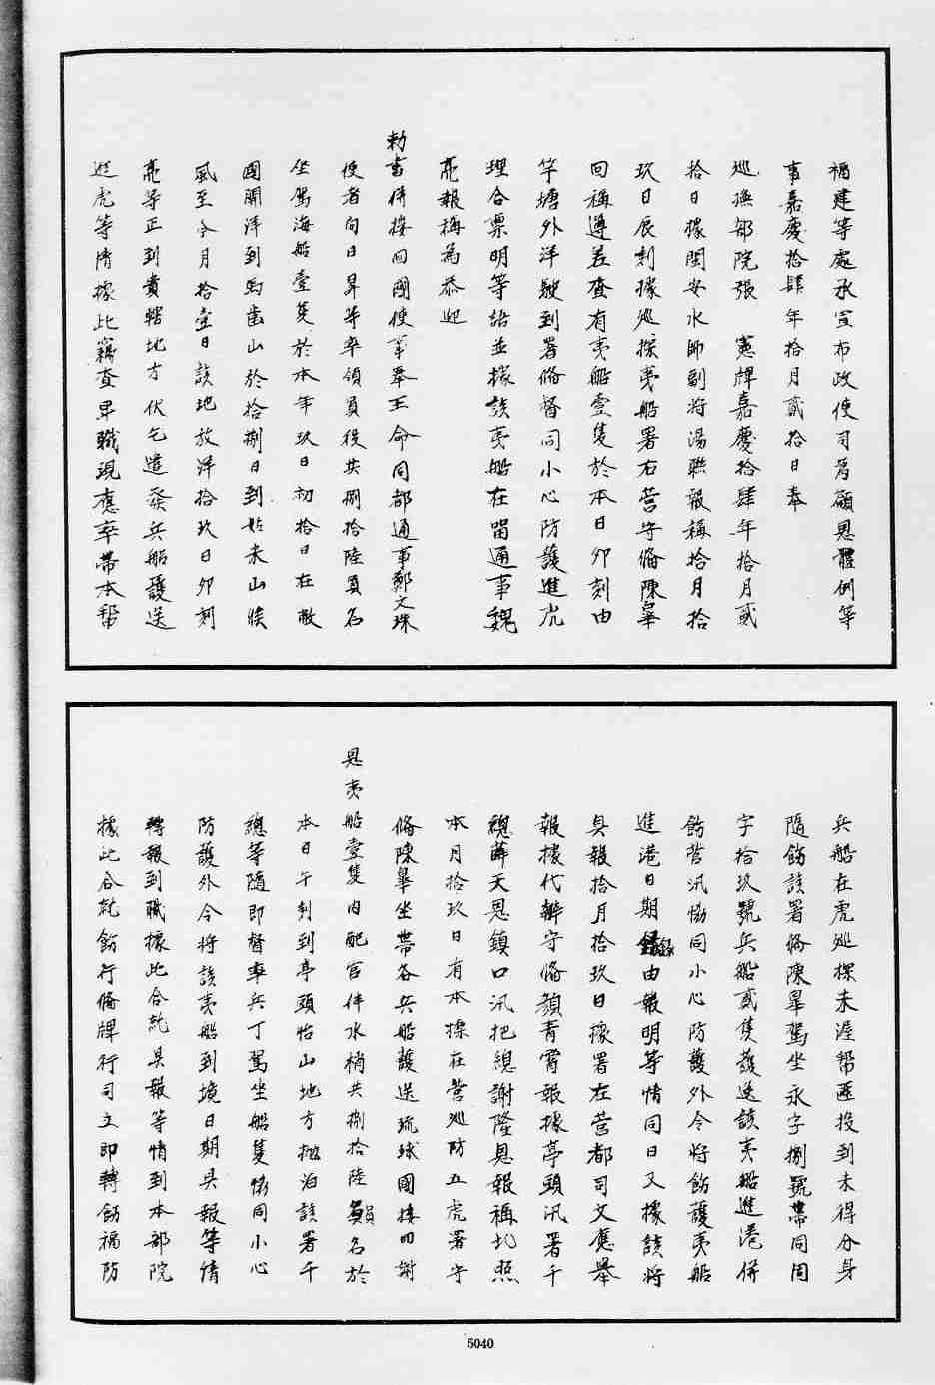 福建等處承宣布政使司為籲恩體例等
事嘉慶拾肆年拾月貳拾日奉
巡撫部院張　憲牌嘉慶拾肆年拾月貳
拾日據閩安水師副將湯聯報稱拾月拾
玖日辰刻據巡探夷船署右營守備陳皐
回稱遵差查有夷船壹隻於本日卯刻由
竿塘外洋駛到署備督同小心防護進虎
理合禀明等語並據該夷船在留通事魏
亮報稱為恭迎
勅書併接回國使等奉王命同都通事鄭文珠
使者向日昇等率領員役共捌拾陸員名
坐駕海船壹隻於本年玖日初拾日在敝
國開洋到馬齒山於拾捌日到姑米山候
風至今月拾壹日該地放洋拾玖日卯刻
亮等正到貴轄地方伏乞遣發兵船護送
進虎等情據此竊查卑職現應率帶本幫
兵船在虎巡探未湰幫匪投到未得分身
隨飭該署備陳皐駕坐永字捌號帶同同
字拾玖號兵船貳隻護送該夷船進港併
飭營汛恊同小心防護外今將飭護夷船
進港日期錄由報明等情同日又據該將
具報拾月拾玖日據署左營都司文應舉
報據代辦守備顏青霄報據亭頭汛署千
總薛天恩鎮口汛把總謝隆恩報稱北照
本月拾玖日有本標在營巡防五虎署守
備陳皐坐帶各兵船護送琉球國接回謝
恩夷船壹隻內配官伴水梢共捌拾陸員名於
本日午刻到亭頭怡山地方抛泊該署千
總等隨即督率兵丁駕坐船隻恊同小心
防護外今將該夷船到境日期具報等情
轉報到職據此合就具報等情到本部院
據此合就飭行備牌行司立即轉飭福防
5040